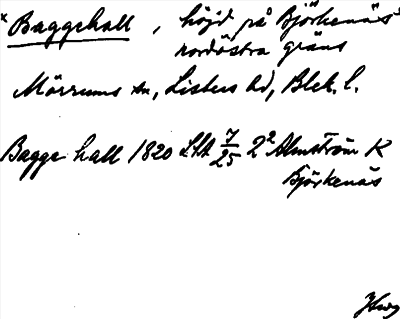 × Baggehall, höjd på Björkenäs
nordöstra gräns
Mörrums sn, Listers hd, Blek. l.
Bagge hall 1820 LSA 7/25 2² Almström K
Björkenäs